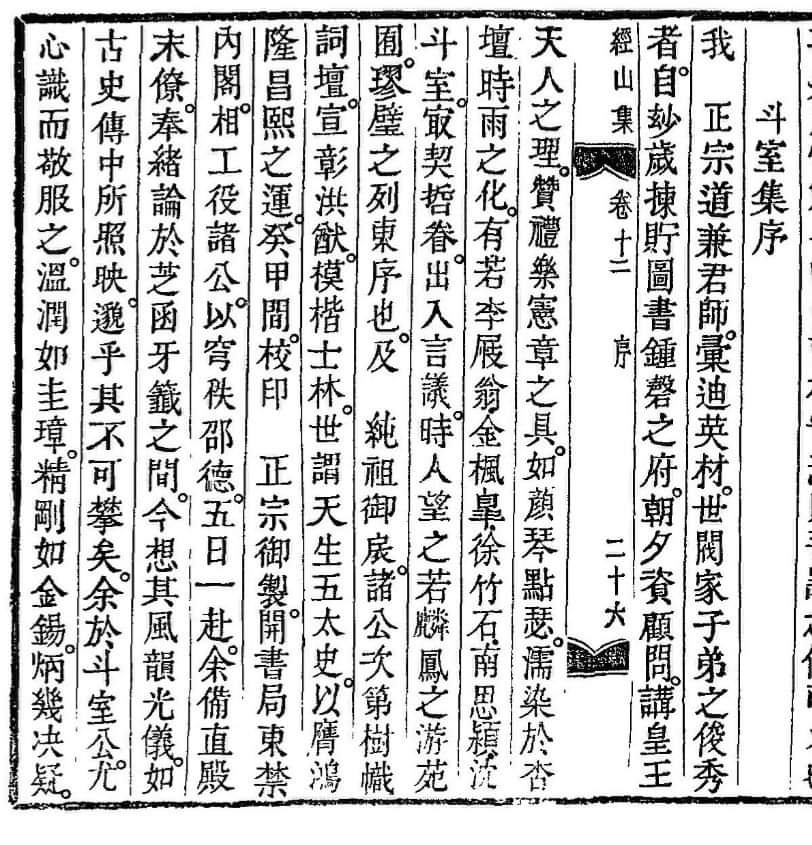 斗室集序
我　正宗道兼君師。彙迪英材。世閥家子弟之俊秀
者。自玅歲揀貯圖書鍾磬之府。朝夕資顧問。講皇王
經山集　卷十二　序　二十六
天人之理。贊禮樂憲章之具。如顏琴點瑟。濡染於杏
壇時雨之化。有若李屐翁,金楓皐,徐竹石,南思穎,沈
斗室。㝡契哲眷。出入言議。時人望之若麟鳳之游苑
囿。璆璧之列東序也。及　純祖御扆。諸公次第樹幟
詞壇。宣彰洪猷。模楷士林。世謂天生五太史。以膺鴻
隆昌熙之運。癸甲間。校印　正宗御製。開書局東禁
內閣。相工役諸公。以穹秩邵德。五日一赴。余備直殿
末僚。奉緖論於芝函牙籤之間。今想其風韻光儀。如
古史傳中所照映。邈乎其不可攀矣。余於斗室公。尤
心識而敬服之。溫潤如圭璋。精剛如金鍚。炳幾决疑。